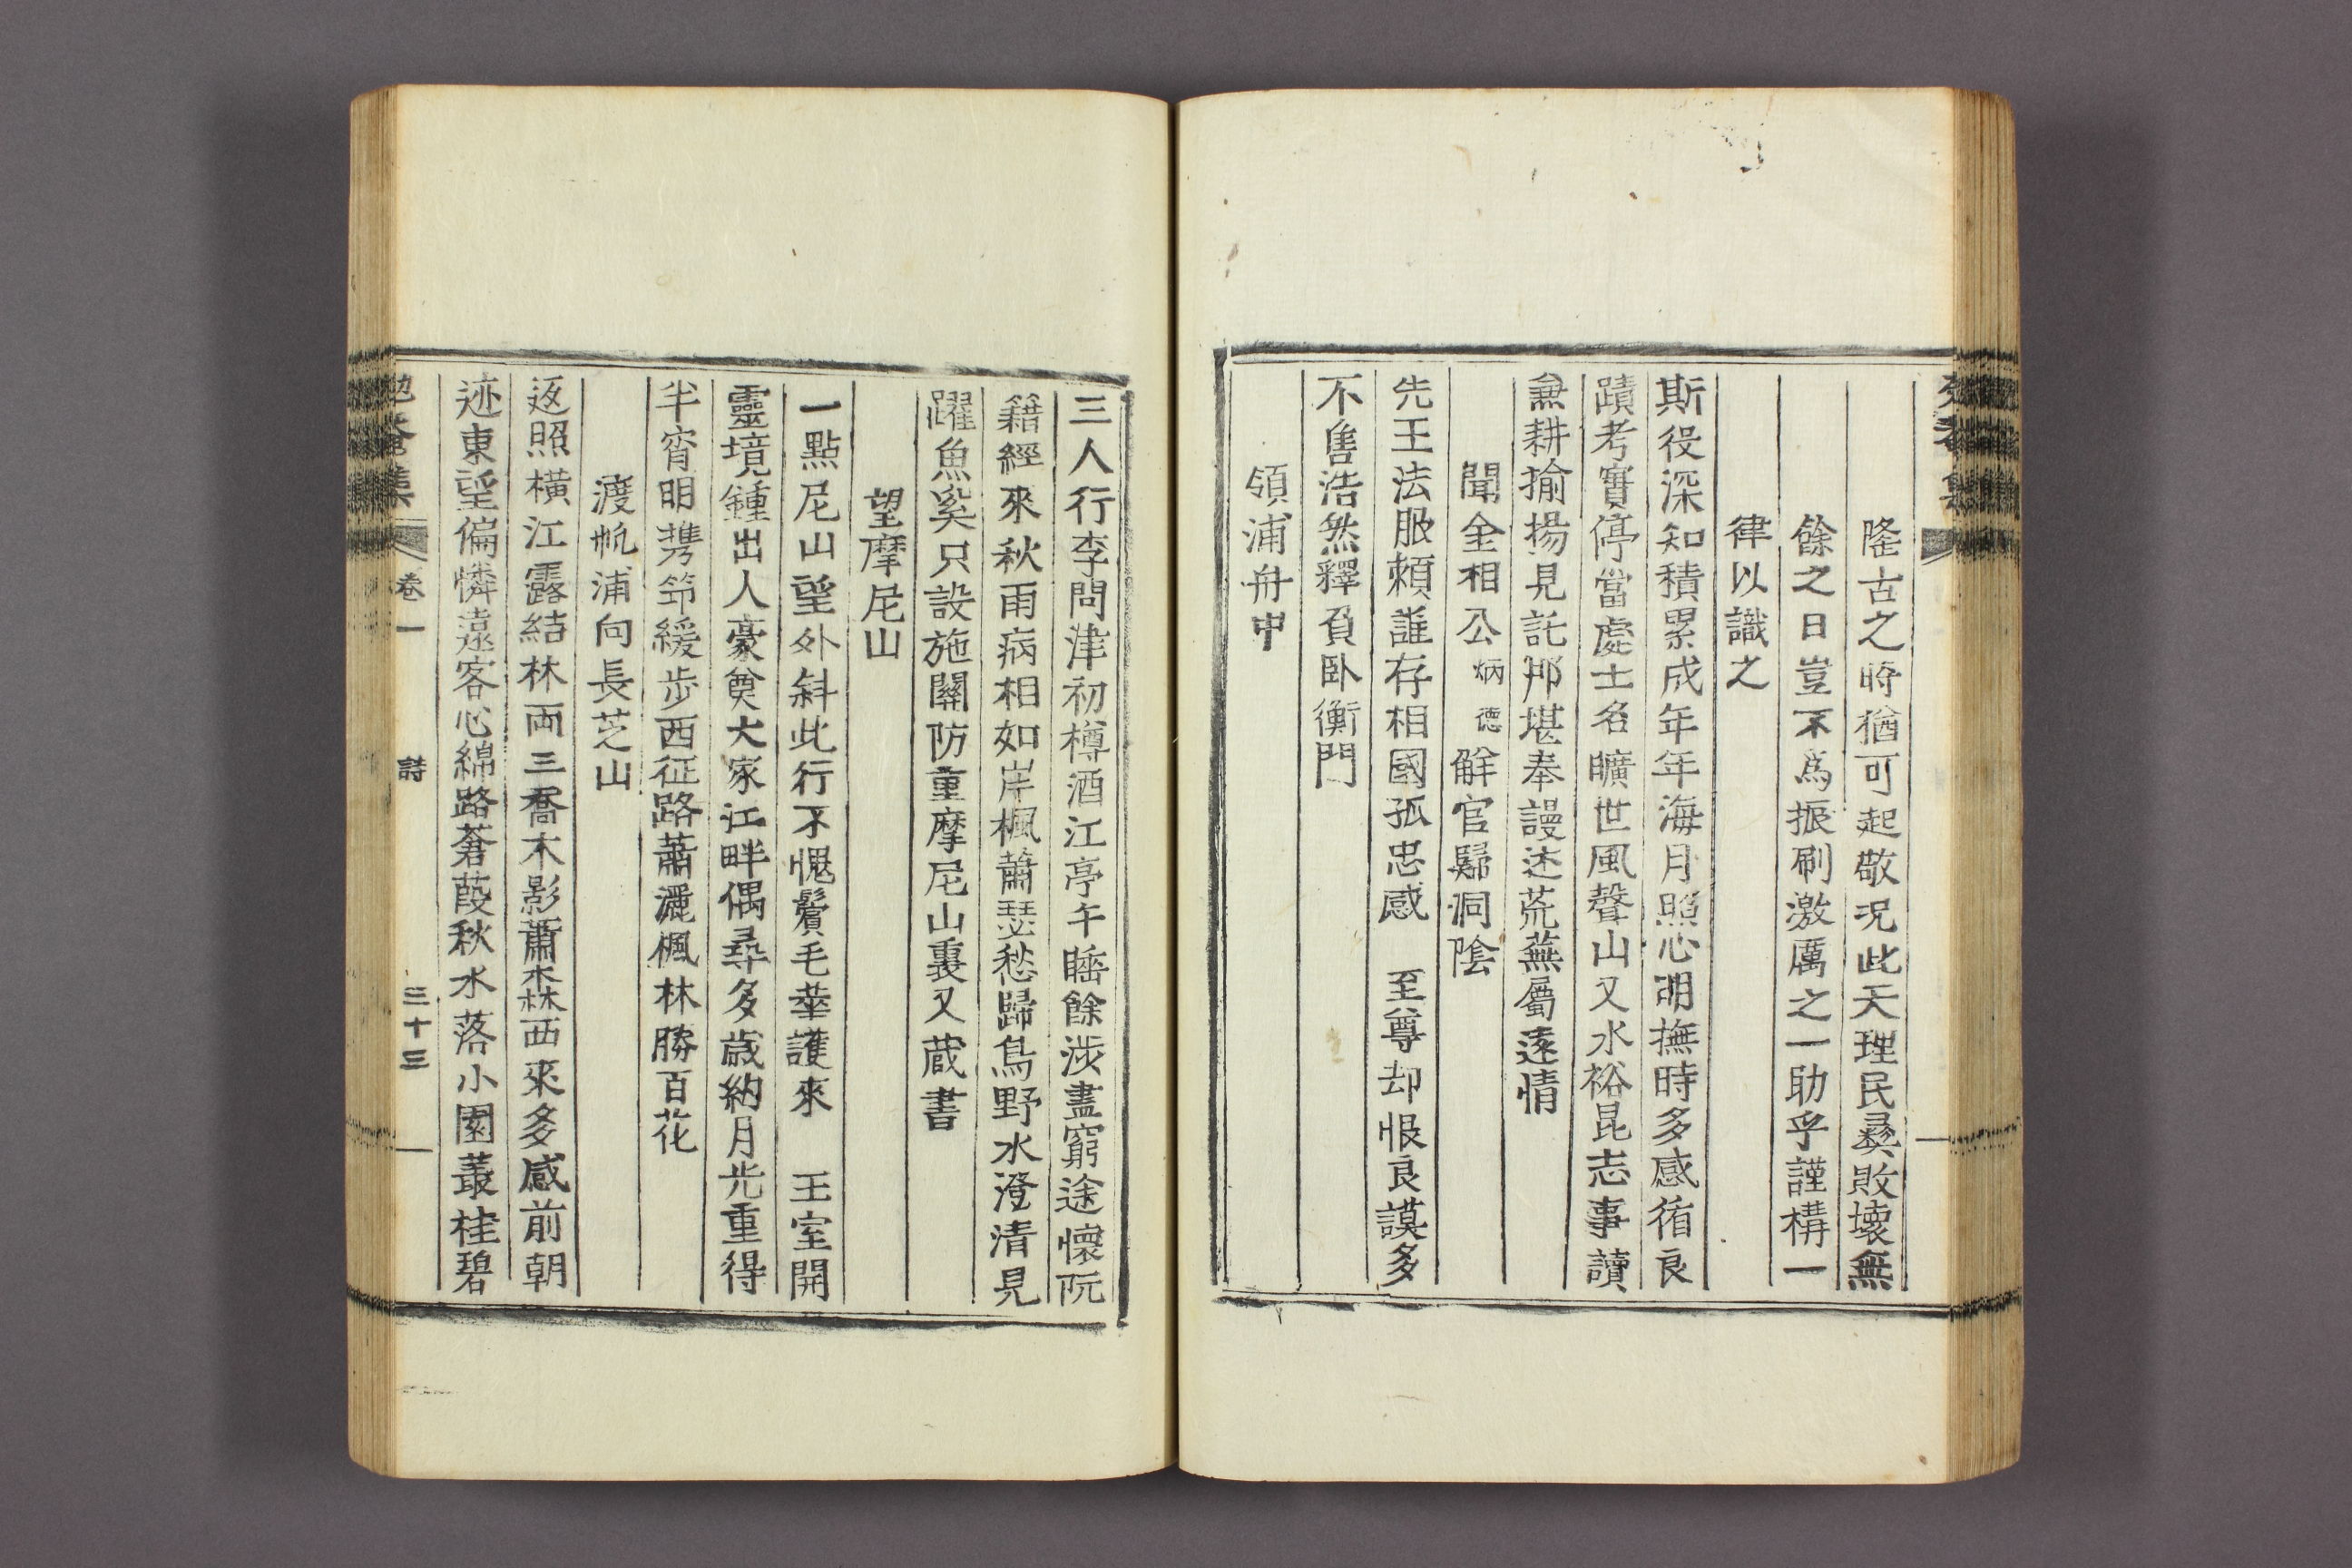 隆古之時猶可起敬況此天理民彛敗壞無
餘之日豈不爲振刷激厲之一助乎謹構一
律以識之
斯役深知積累成年年海月照心明撫時多感循良
蹟考實停當處士名曠世風聲山又水裕昆志事讀
兼耕揄揚見託那堪奉謾述荒蕪屬遠情
聞金相公炳德解官歸洞陰
先王法服賴誰存相國孤忠感 至尊却恨良謨多
不售浩然釋負臥衡門
領浦舟中
三人行李問津初樽酒江亭午睡餘涉盡窮途懷阮
籍經來秋雨病相如岸楓蕭瑟愁歸鳥野水澄淸見
躍魚奚只設施關防重摩尼山裏又藏書
望摩尼山
一點尼山望外斜此行不愧鬢毛華護來 王室開
靈境鍾出人豪奠大家江畔偶尋多歲納月光重得
半宵明携笻緩步西征路蕭灑楓林勝百花
渡帆浦向長芝山
返照橫江露結林兩三喬木影蕭森西來多感前朝
迹東望偏憐遠客心綿路蒼葭秋水落小園叢桂碧
卷一
詩
三十三